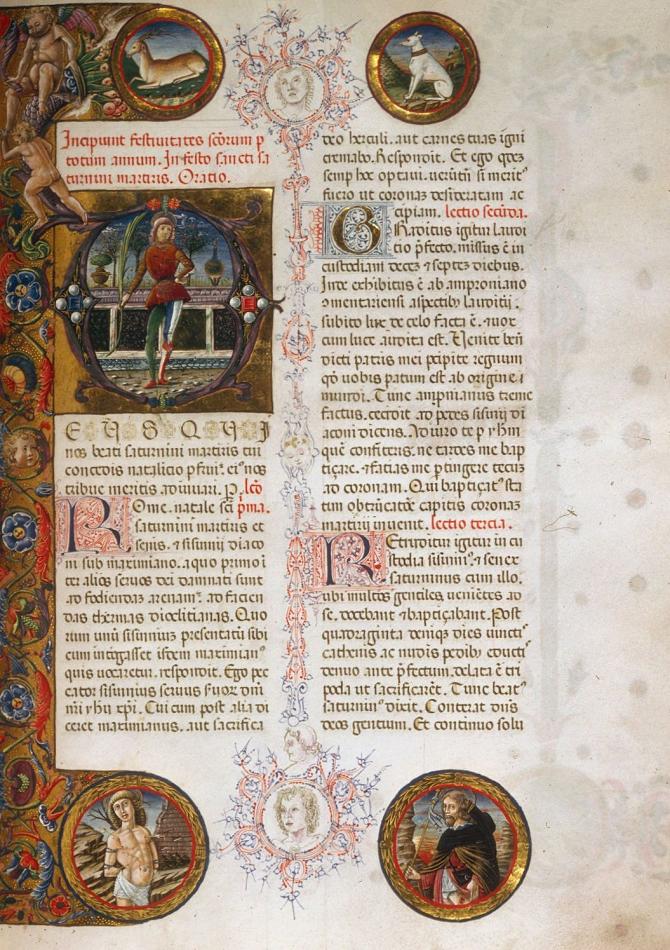 Incipiunt festiuitates scõrum p
totum annum. In festo sancti sa
turnini martiris. Oratio.
E U S Q U I
nos beati saturnini martiris tui
concedis natalicio pfrui. ei⁹ nos
tribue meritis adiuuari. p. lcõ
Rome. natale sci pma.
saturnini martiris et
senis. ⁊ sisinnij diaco
ni sub maximiano. a quo primo ĩ
ter alios seruos dei damnati sunt
ad fodiendas arenam. ad facien
das thermas dioclitianas. Quo
rum unũ sisinnius presentatũ sibi
cum intgasset isdem maximian⁹
quis uocaretur. respondit. Ego pec
cator sisinnius seruus suor dñi
nr̃i yhũ xp̃i. Cui cum post alia di
ceret maximianus. aut sacrifica
deo herculi. aut carnes tuas igni
cremabo. Respondit. Et ego qdez
semp hoc optaui. uerũtñ si merit⁹
fuero ut coronaz desideratam ac
cipiam. lectio secũda.
Traditus igitur laudi
cio pfecto. missus ẽ in
custodiam decez ⁊ septez diebus.
Inde exhibitus ẽ ab amproniano
ɔmentariensi aspectib⁹ laudicij.
subito lux de celo facta ẽ. ⁊ uox
cum luce audita est. Uenite bñ
dicti patris mei pcipite regnum
qð uobis patum est ab origine
mundi. Tunc ampnianus treme
factus. cecidit ad pedes sisinij di
aconi dicens. Adiuro te p yhm
quẽ confiteris. ne tardes me bap
tiçare. ⁊ facias me ptingere tecuz
ad coronam. Qui baptiçat⁹ sta
tim obtrũcatõe capitis coronaz
martirij inuenit. lectio tercia.
Retruditur igitur in cu
stodia sisinni⁹. ⁊ senex
saturninus cum illo.
ubi multos gentiles. ueniẽtes ad
se. docebant ⁊ baptiçabant. Post
quadraginta deniqz dies iuncti
cathenis ac nudis pedib⁹ educti
denuo ante pfectum. delata ẽ tri
poda ut sacrificarẽt. Tunc beat⁹
saturnin⁹ dixit. Conterat dñs
deos gentium. Et continuo solu